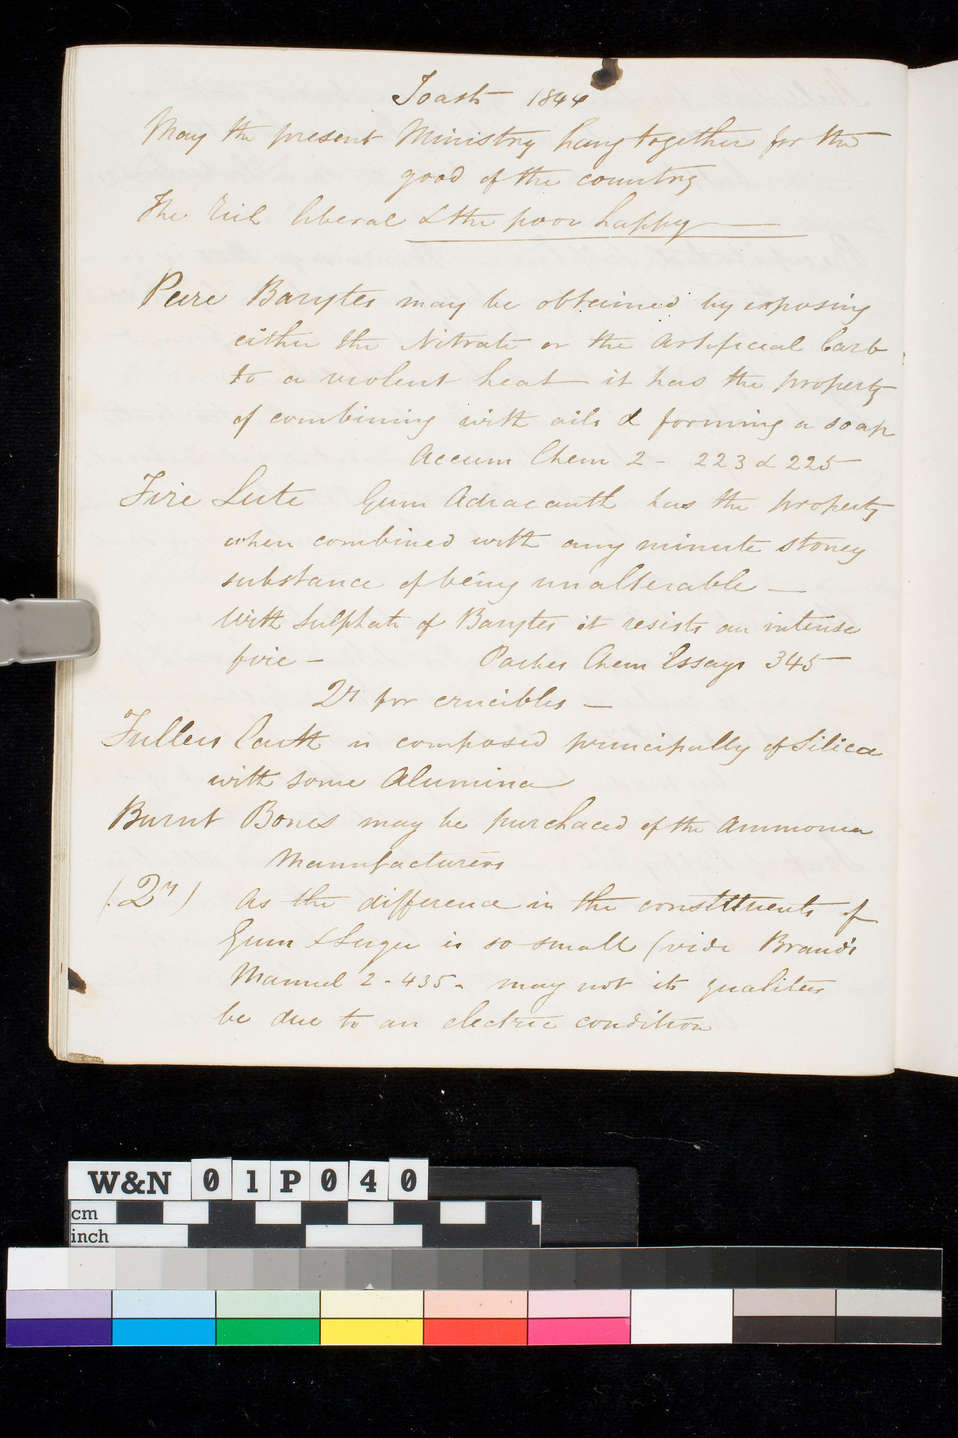 Toast 1844
May the present Ministry hang together for the
good of the country
The Rich liberal & the poor happy
Pure Barytes may be obtained by exposing
either the Nitrate or the Artificial Carb
to a violent heat it has the property
of combining with oils & forming a soap
Accum Chem 2 - 223 & 225
Fire Lute Gum Adracanth has the property
when combined with any minute stoney
substance of being unalterable —
With Sulphate of Barytes it resists an intense
fire — Parkes Chem Essays 345
Qy for crucibles —
Fullers Earth is composed principally of Silica
with some Alumina
Burnt Bones may be purchaced of the Ammonia
Manufacturers
(Qy) As the difference in the constituents of
Gum & Sugar is so small (vide Brand's
Manuel 2 - 435 - may not its qualities
be due to an electric condition
W&N 01P040
cm
inch